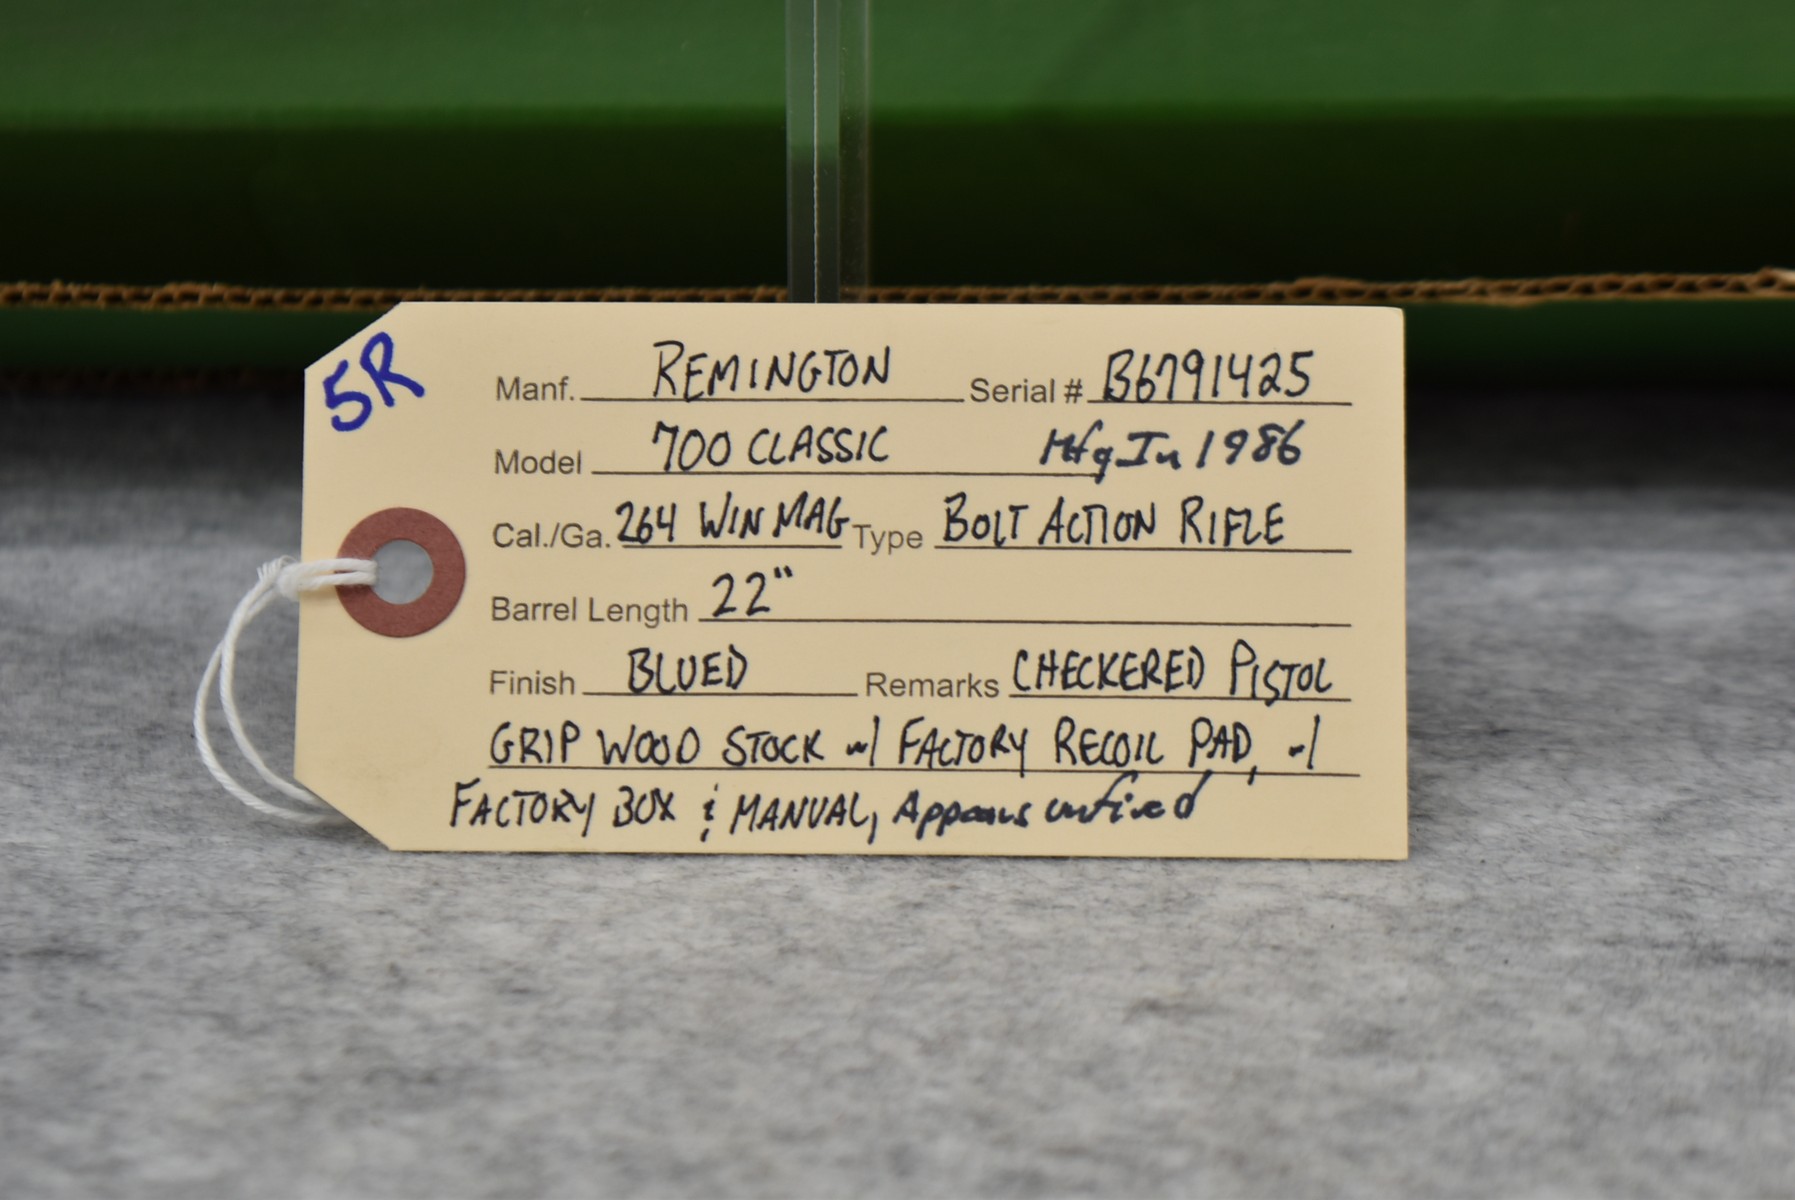 5R
Manf. REMINGTON Serial # B6791425
Model 700 CLASSIC Mfg In 1986
Cal./Ga. 264 WIN MAG Type BOLT ACTION RIFLE
Barrel Length 22"
Finish BLUED Remarks CHECKERED PISTOL
GRIP WOOD STOCK w/ FACTORY RECOIL PAD, w/
FACTORY BOX & MANUAL, Appears unfired